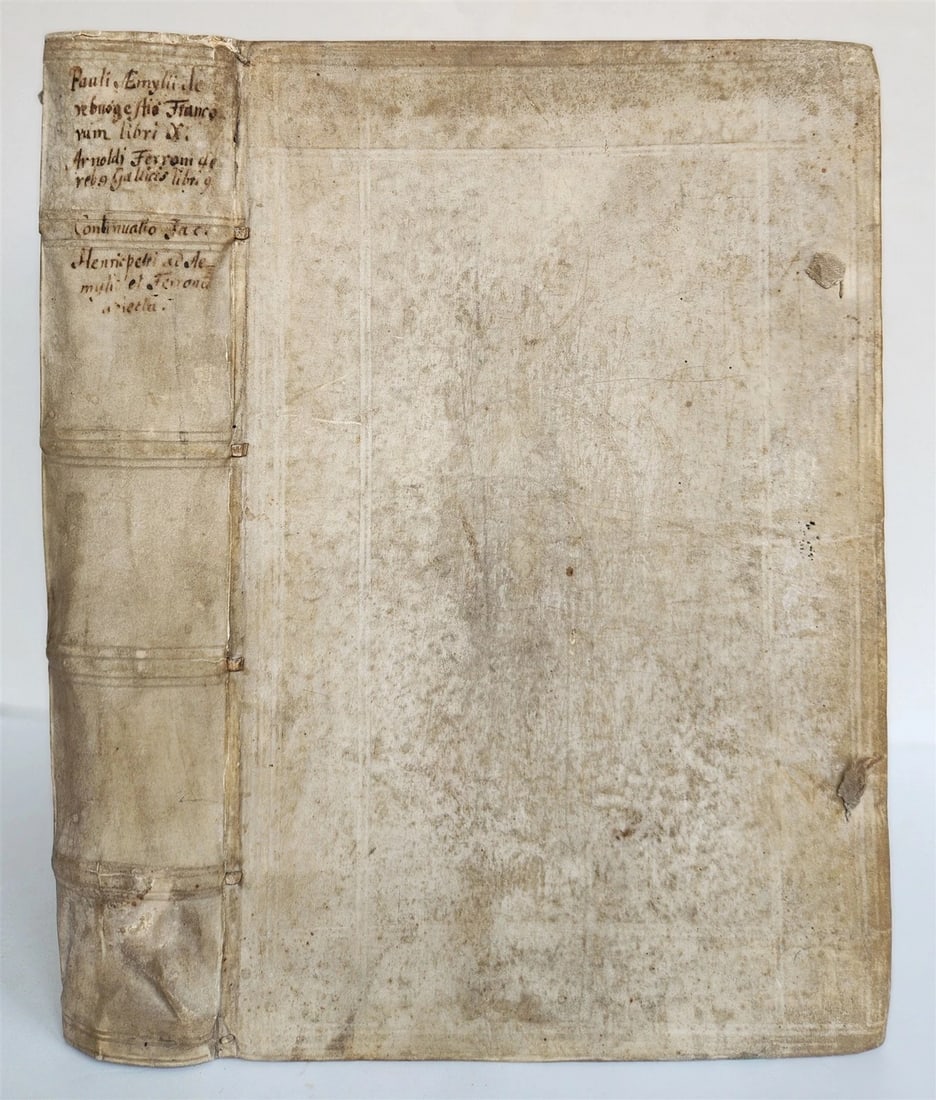 Pauli Æmylii de
rebusgestis Franco
rum libri X.
Arnoldi Ferroni de
reb9 Gallicis libri 9
Continuatio Jac.
Henricpetri ad Ae_
myliũ et Ferronũ
adiecta.